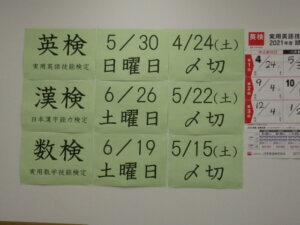 英検
実用英語技能検定
5/30
日曜日
4/24(土)
〆切
漢検
日本漢字能力検定
6/26
土曜日
5/22(土)
〆切
数検
実用数学技能検定
6/19
土曜日
5/15(土)
〆切
英検
実用英語技
2021年度
4/24